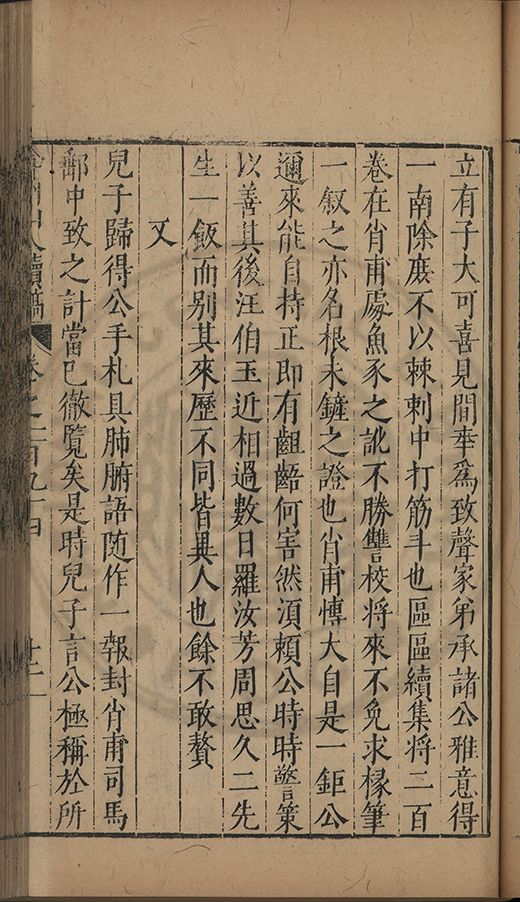 立有子大可喜見間幸爲致聲家弟承諸公雅意得
一南除庶不以棘刺中打筋斗也區區續集將二百
卷在肖甫處魚豕之訛不勝讐校將來不免求椽筆
一叙之亦名根未鏟之證也肖甫愽大自是一鉅公
邇來能自持正即有齟齬何害然湏賴公時時警策
以善其後汪伯玉近相過數日羅汝芳周思久二先
生一飯而别其來歷不同皆異人也餘不敢贅
又
兒子歸得公手札具肺腑語随作一報封肖甫司馬
郵中致之計當已徹覽矣是時兒子言公極稱於所
弇州山人續稿
卷之一百九十四
廿二